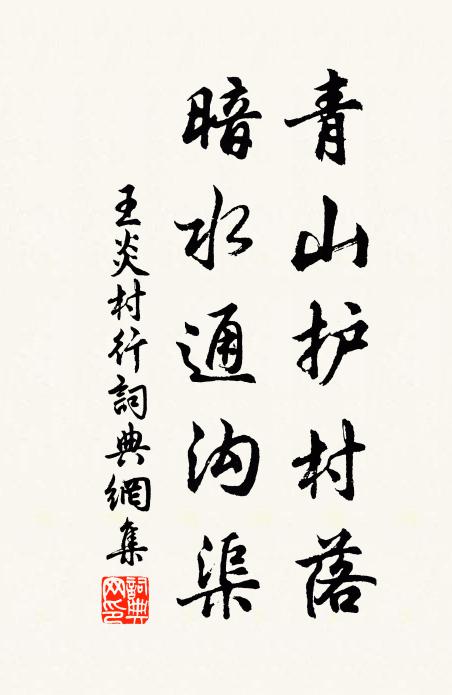 青山护村落
暗水通沟渠
王炎村行詞典網集
詞典网印